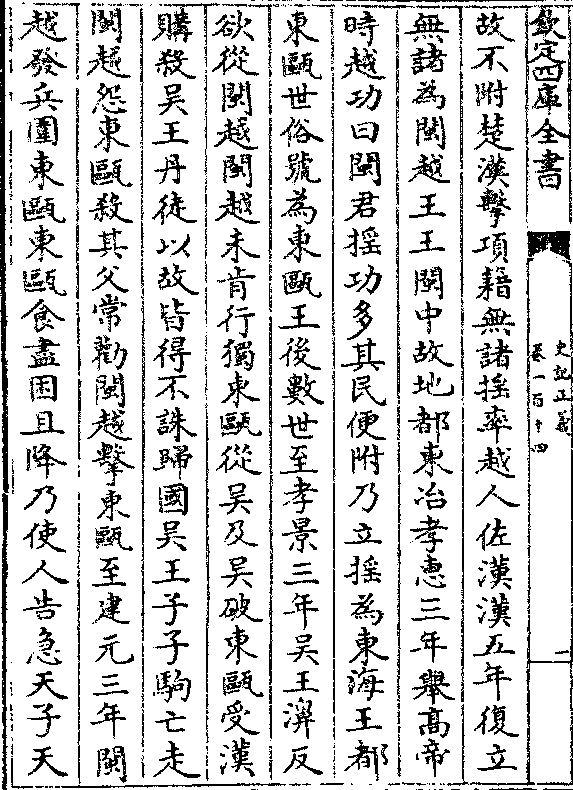 欽定四庫全書
史記正義
卷一百十四
一
故不附楚漢擊項籍無諸揺率越人佐漢漢五年復立
無諸為閩越王王閩中故地都東冶孝惠三年舉髙帝
時越功曰閩君揺功多其民便附乃立揺為東海王都
東甌世俗號為東甌王後數世至孝景三年吳王濞反
欲從閩越閩越未肯行獨東甌從吳及吳破東甌受漢
購殺吳王丹徒以故皆得不誅歸國吳王子子駒亡走
閩越怨東甌殺其父常勸閩越擊東甌至建元三年閩
越發兵圍東甌東甌食盡困且降乃使人告急天子天